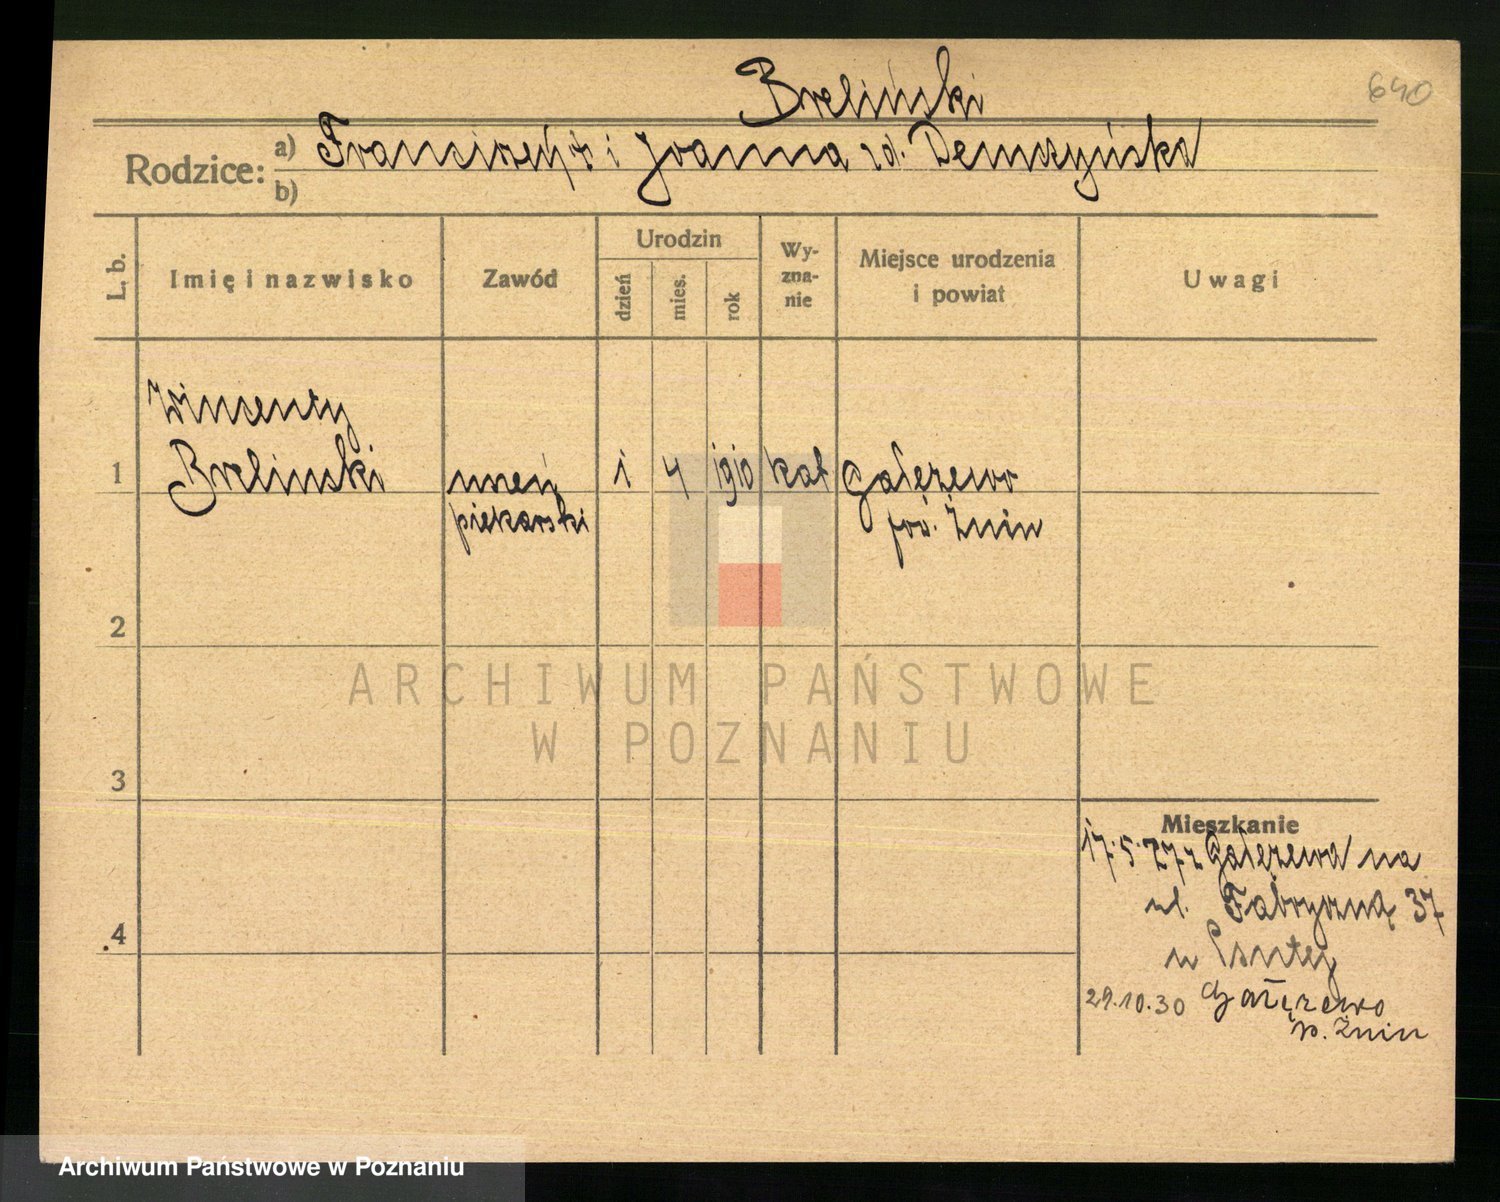 Breliński
640
Rodzice: a) Franciszek i Joanna zd. Demczyńska
b)
L. b.
Imię i nazwisko
Zawód
Urodzin
dzień
mies.
rok
Wy-
zna-
nie
Miejsce urodzenia
i powiat
Uwagi
Wincenty
1 Brelinski uczeń 1 4 1910 kat Gałęzewo
piekarski pow. Żnin
2
ARCHIWUM PAŃSTWOWE
W POZNANIU
3
Mieszkanie
17.5.27 z Gałęzewa na
ul. Fabryczną 37
4
w
29.10.30 Gałęzewo
p. Żnin
Archiwum Państwowe w Poznaniu